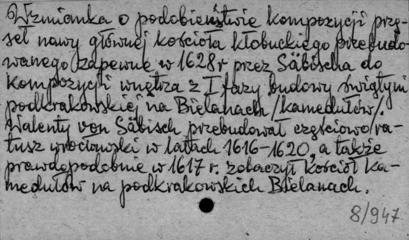 Wzmianka o podobieństwie kompozycji przę-
seł nawy głównej kościoła kłobuckiego przebudo
wanego/zapewne w 1628 r przez Säbischa do
kompozycji wnętrza z I fazy budowy świątyni
podkrakowskiej na Bielanach /kamedułów/.
Walenty von Säbisch przebudował częściowo ra-
tusz wrocławski w latach 1616-1620, a także
prawdopodobnie w 1617 r. zobaczył kościół ka-
medułów na podkrakowskich Bielanach.
8/947